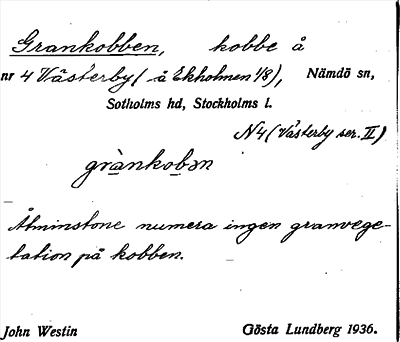 Grankobben, kobbe å
nr 4 Västerby (å Ekholmen 1/8), Nämdö sn,
Sotholms hd, Stockholms l.
N4 (Västerby ser. II)
grànkob̥ən
Åtminstone numera ingen granvege-
tation på kobben.
John Westin Gösta Lundberg 1936.